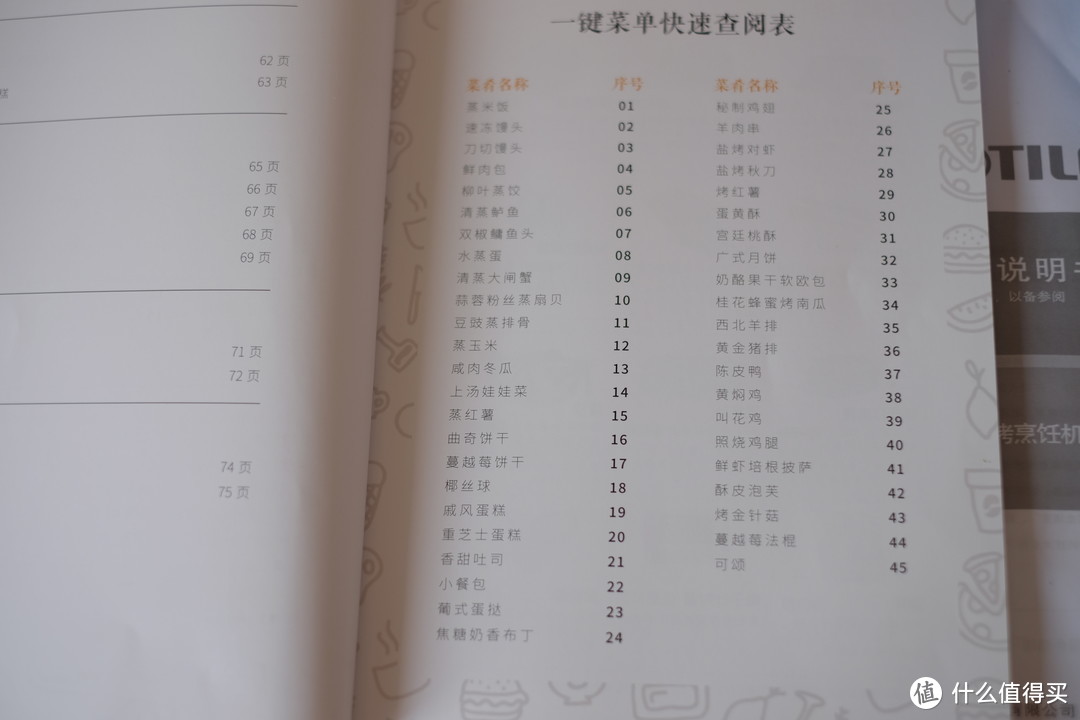 62 页
63 页
糕
65 页
66 页
67 页
68 页
69 页
71 页
72 页
74 页
75 页
一键菜单快速查阅表
菜肴名称 序号
蒸米饭 01
速冻馒头 02
刀切馒头 03
鲜肉包 04
柳叶蒸饺 05
清蒸鲈鱼 06
双椒鳙鱼头 07
水蒸蛋 08
清蒸大闸蟹 09
蒜蓉粉丝蒸扇贝 10
豆豉蒸排骨 11
蒸玉米 12
咸肉冬瓜 13
上汤娃娃菜 14
蒸红薯 15
曲奇饼干 16
蔓越莓饼干 17
椰丝球 18
戚风蛋糕 19
重芝士蛋糕 20
香甜吐司 21
小餐包 22
葡式蛋挞 23
焦糖奶香布丁 24
菜肴名称 序号
秘制鸡翅 25
羊肉串 26
盐烤对虾 27
盐烤秋刀 28
烤红薯 29
蛋黄酥 30
宫廷桃酥 31
广式月饼 32
奶酪果干软欧包 33
桂花蜂蜜烤南瓜 34
西北羊排 35
黄金猪排 36
陈皮鸭 37
黄焖鸡 38
叫花鸡 39
照烧鸡腿 40
鲜虾培根披萨 41
酥皮泡芙 42
烤金针菇 43
蔓越莓法棍 44
可颂 45
OTIL
说明书
以备参阅
烤烹饪机
值 什么值得买